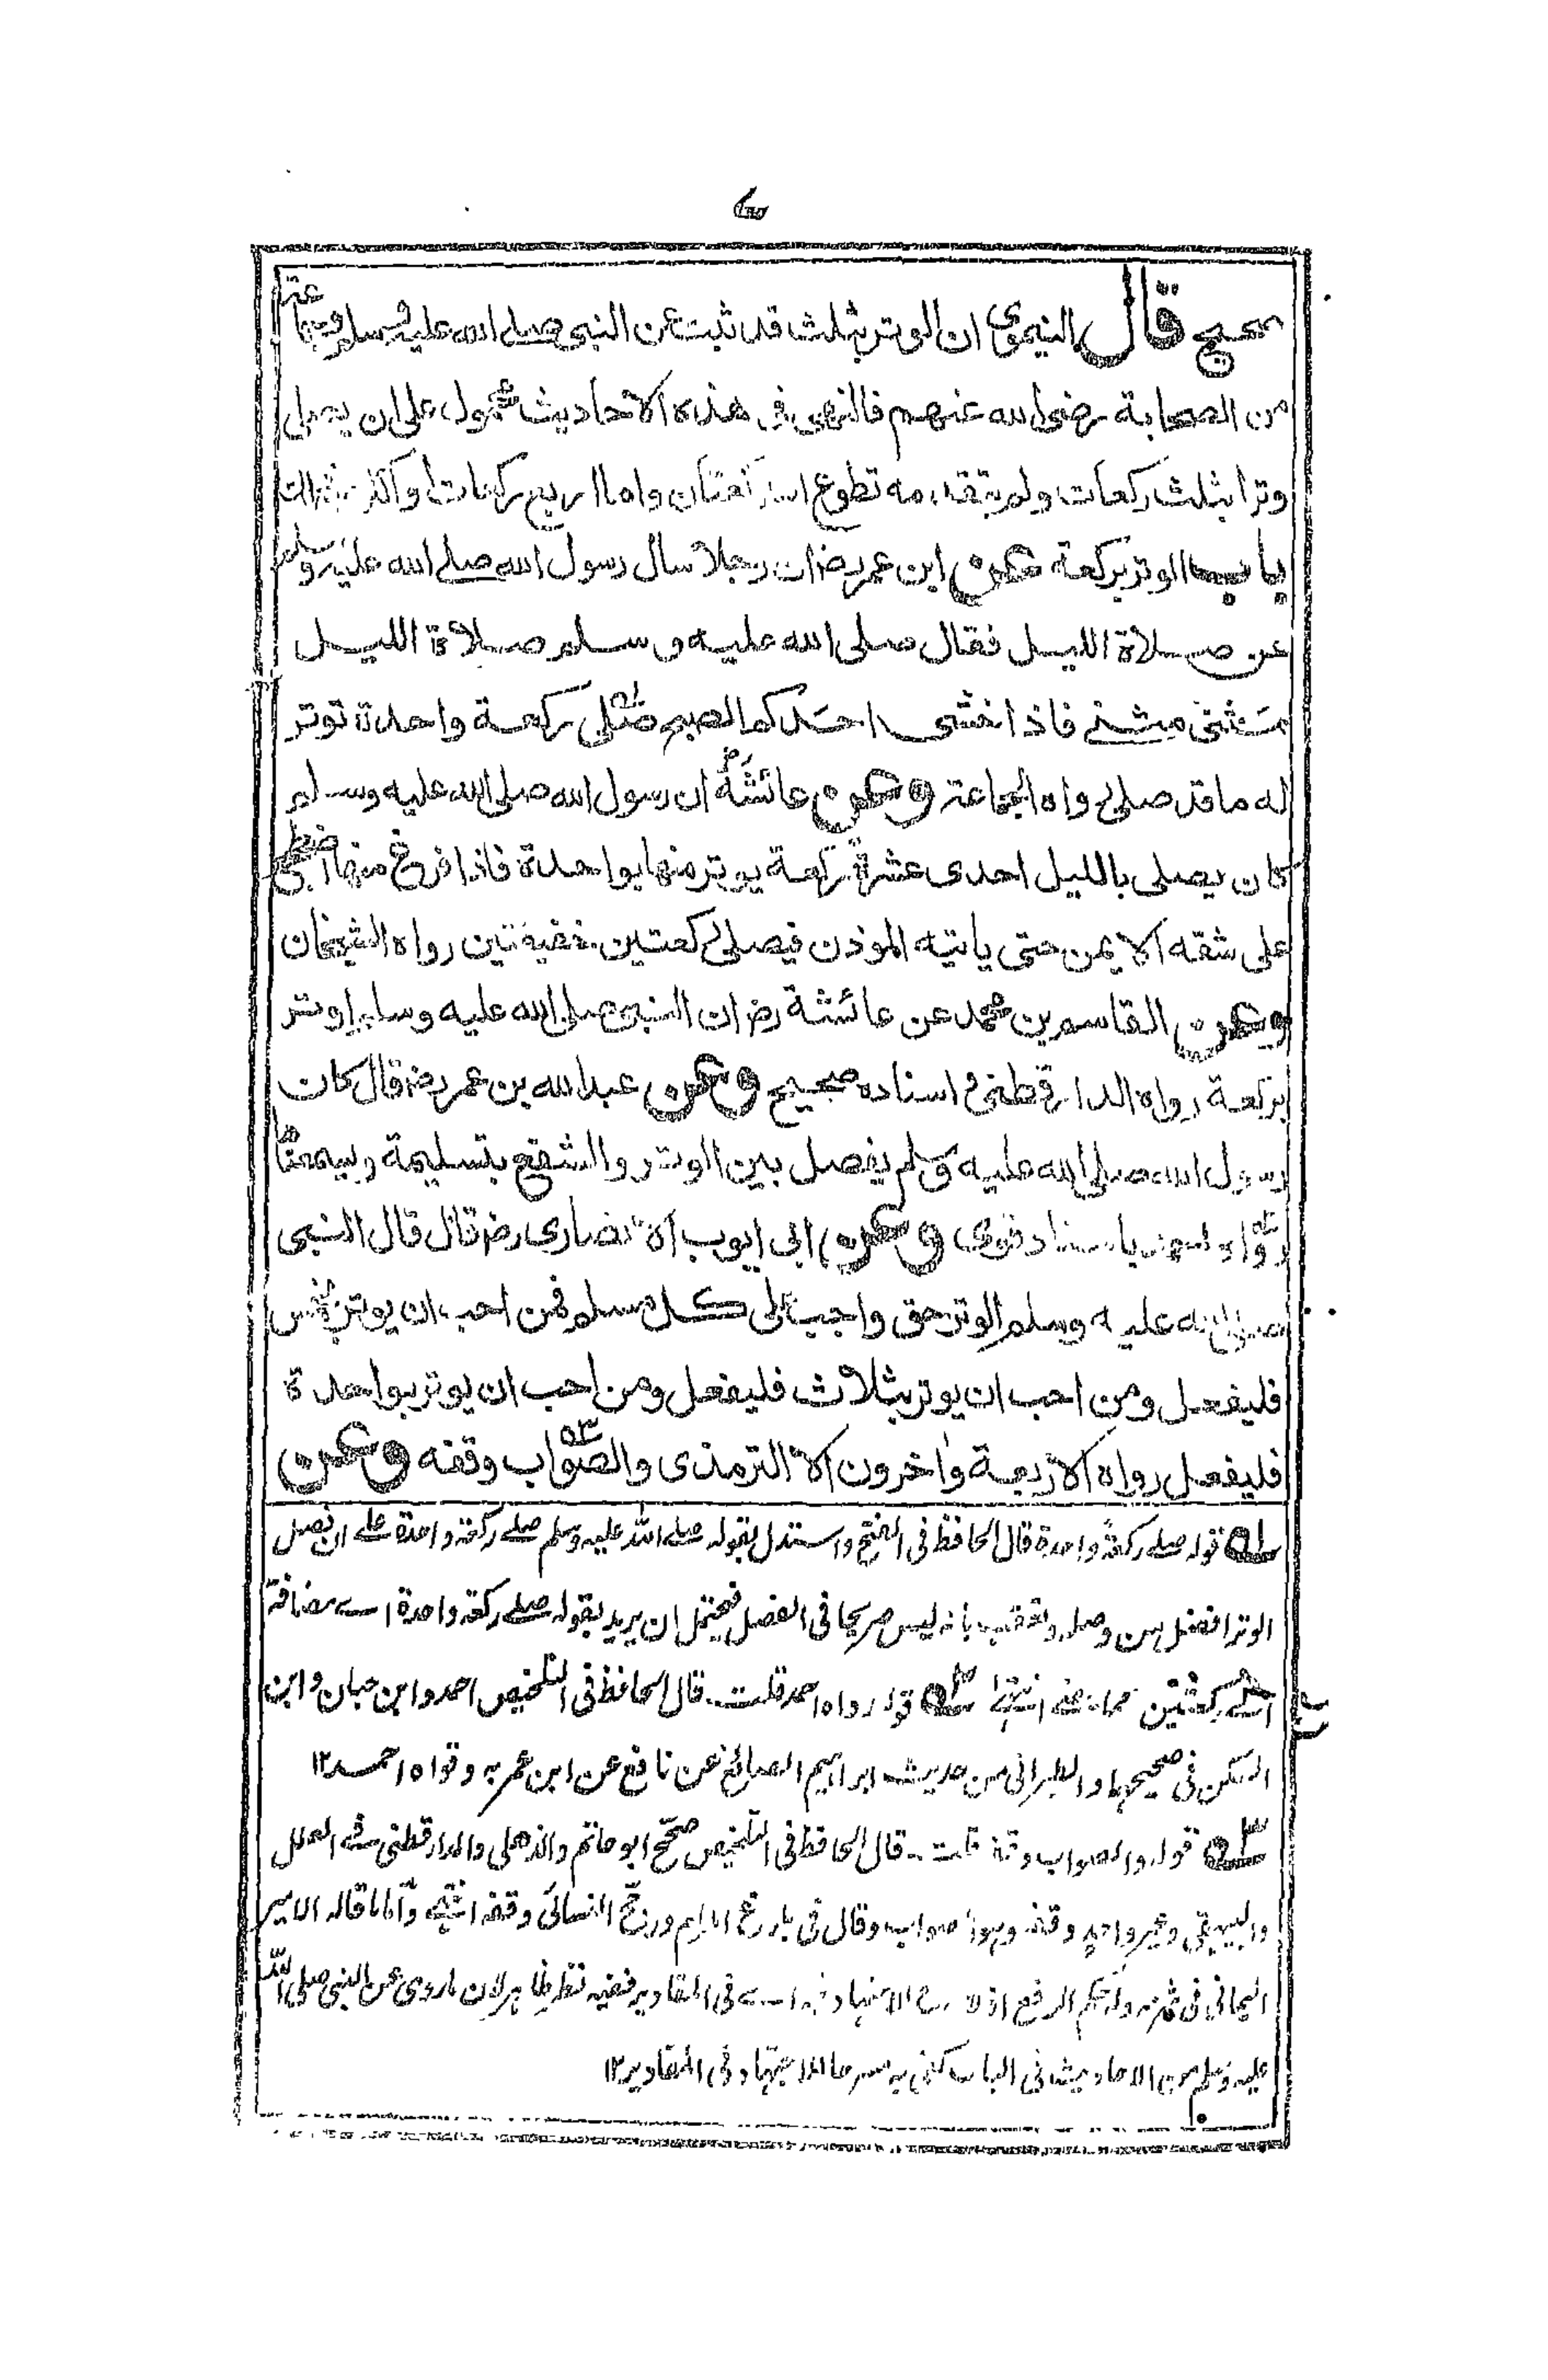 صحيح قال النيموي ان الوتر بثلث قد ثبت عن النبي صلى الله عليه وسلم وجماعة
من الصحابة رضي الله عنهم فالنهي في هذه الاحاديث محمول على ان يصلي
وترا بثلث ركعات ولم يتقدمه تطوع اما ركعتان واما اربع ركعات او اكثر من ذلك
باب الوتر بركعة عن ابن عمر رض ان رجلا سال رسول الله صلى الله عليه وسلم
عن صلاة الليل فقال صلى الله عليه وسلم صلاة الليل
مثنى مثنى فاذا خشى احدكم الصبح صلى ركعة واحدة توتر
له ما قد صلى رواه الجماعة وعن عائشة رض ان رسول الله صلى الله عليه وسلم
كان يصلى بالليل احدى عشرة ركعة يوتر منها بواحدة فاذا فرغ منها اضطجع
على شقه الايمن حتى ياتيه الموذن فيصلى ركعتين خفيفتين رواه الشيخان
وعن القاسم بن محمد عن عائشة رض ان النبي صلى الله عليه وسلم اوتر
بركعة رواه الدارقطني واسناده صحيح وعن عبد الله بن عمر رض قال كان
رسول الله صلى الله عليه وسلم يفصل بين الوتر والشفع بتسليمة ويسمعناها
رواه احمد باسناد قوى وعن ابى ايوب الانصارى رض قال قال النبى
صلى الله عليه وسلم الوتر حق واجب على كل مسلم فمن احب ان يوتر بخمس
فليفعل ومن احب ان يوتر بثلاث فليفعل ومن احب ان يوتر بواحدة
فليفعل رواه الاربعة واخرون الا الترمذى والصواب وقفه وعن
له قوله صلى ركعة واحدة قال الحافظ في الفتح واستدل بقوله صلى الله عليه وسلم صلى ركعة واحدة على ان فصل
الوتر افضل من وصله وتعقب بانه ليس صريحا في الفصل فيحتمل ان يريد بقوله صلى ركعة واحدة اے مضافة
الى ركعتين مما مضى انتهى ٢ه قوله رواه احمد قلت قال الحافظ في التلخيص احمد وابن حبان وابن
السكن في صحيحيهما والطبرانى من حديث ابراهيم الصائغ عن نافع عن ابن عمر به وقواه احمد ١٢
٣ه قوله والصواب وقفه قلت قال الحافظ في التلخيص صحح ابو حاتم والذهلى والدارقطنى في العلل
والبيهقى وغير واحد وقفه وهو الصواب وقال في بلوغ المرام ورجح النسائى وقفه انتهى واما ما قاله الامير
اليمانى في شرحه وله حكم الرفع اذ لا مسرح للاجتهاد فيه اے في المقادير ففيه نظر ظاهر لان ما روى عن النبى صلى الله
عليه وسلم من الاحاديث في الباب كفى به مسرحا للاجتهاد في المقادير ١٢